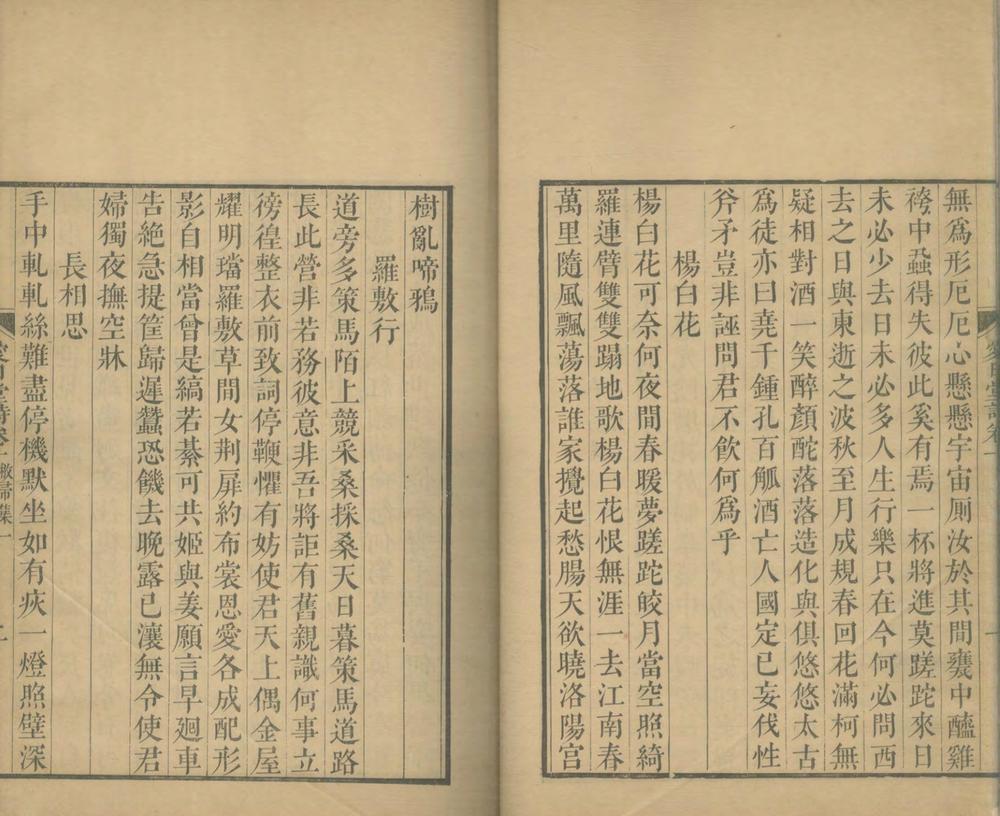 無爲形厄厄心懸懸宇宙厠汝於其間甕中醯雞
褲中蝨得失彼此奚有焉一杯將進莫蹉跎來日
未必少去日未必多人生行樂只在今何必問西
去之日與東逝之波秋至月成規春回花滿柯無
疑相對酒一笑醉顏酡落落造化與俱悠悠太古
爲徒亦曰堯千鍾孔百觚酒亡人國定已妄伐性
斧矛豈非誣問君不飲何爲乎
楊白花
楊白花可奈何夜間春暖夢蹉跎皎月當空照綺
羅連臂雙雙蹋地歌楊白花恨無涯一去江南春
萬里隨風飄蕩落誰家攪起愁腸天欲曉洛陽宫
樹亂啼鴉
羅敷行
道旁多策馬陌上競采桑採桑天日暮策馬道路
長此營非若務彼意非吾將詎有舊親識何事立
徬徨整衣前致詞停鞭懼有妨使君天上偶金屋
耀明璫羅敷草間女荆扉約布裳恩愛各成配形
影自相當曾是縞若綦可共姬與姜願言早廻車
告絶急提筐歸遲蠶恐饑去晚露已瀼無令使君
婦獨夜撫空牀
長相思
手中軋軋絲難盡停機默坐如有疢一燈照壁深